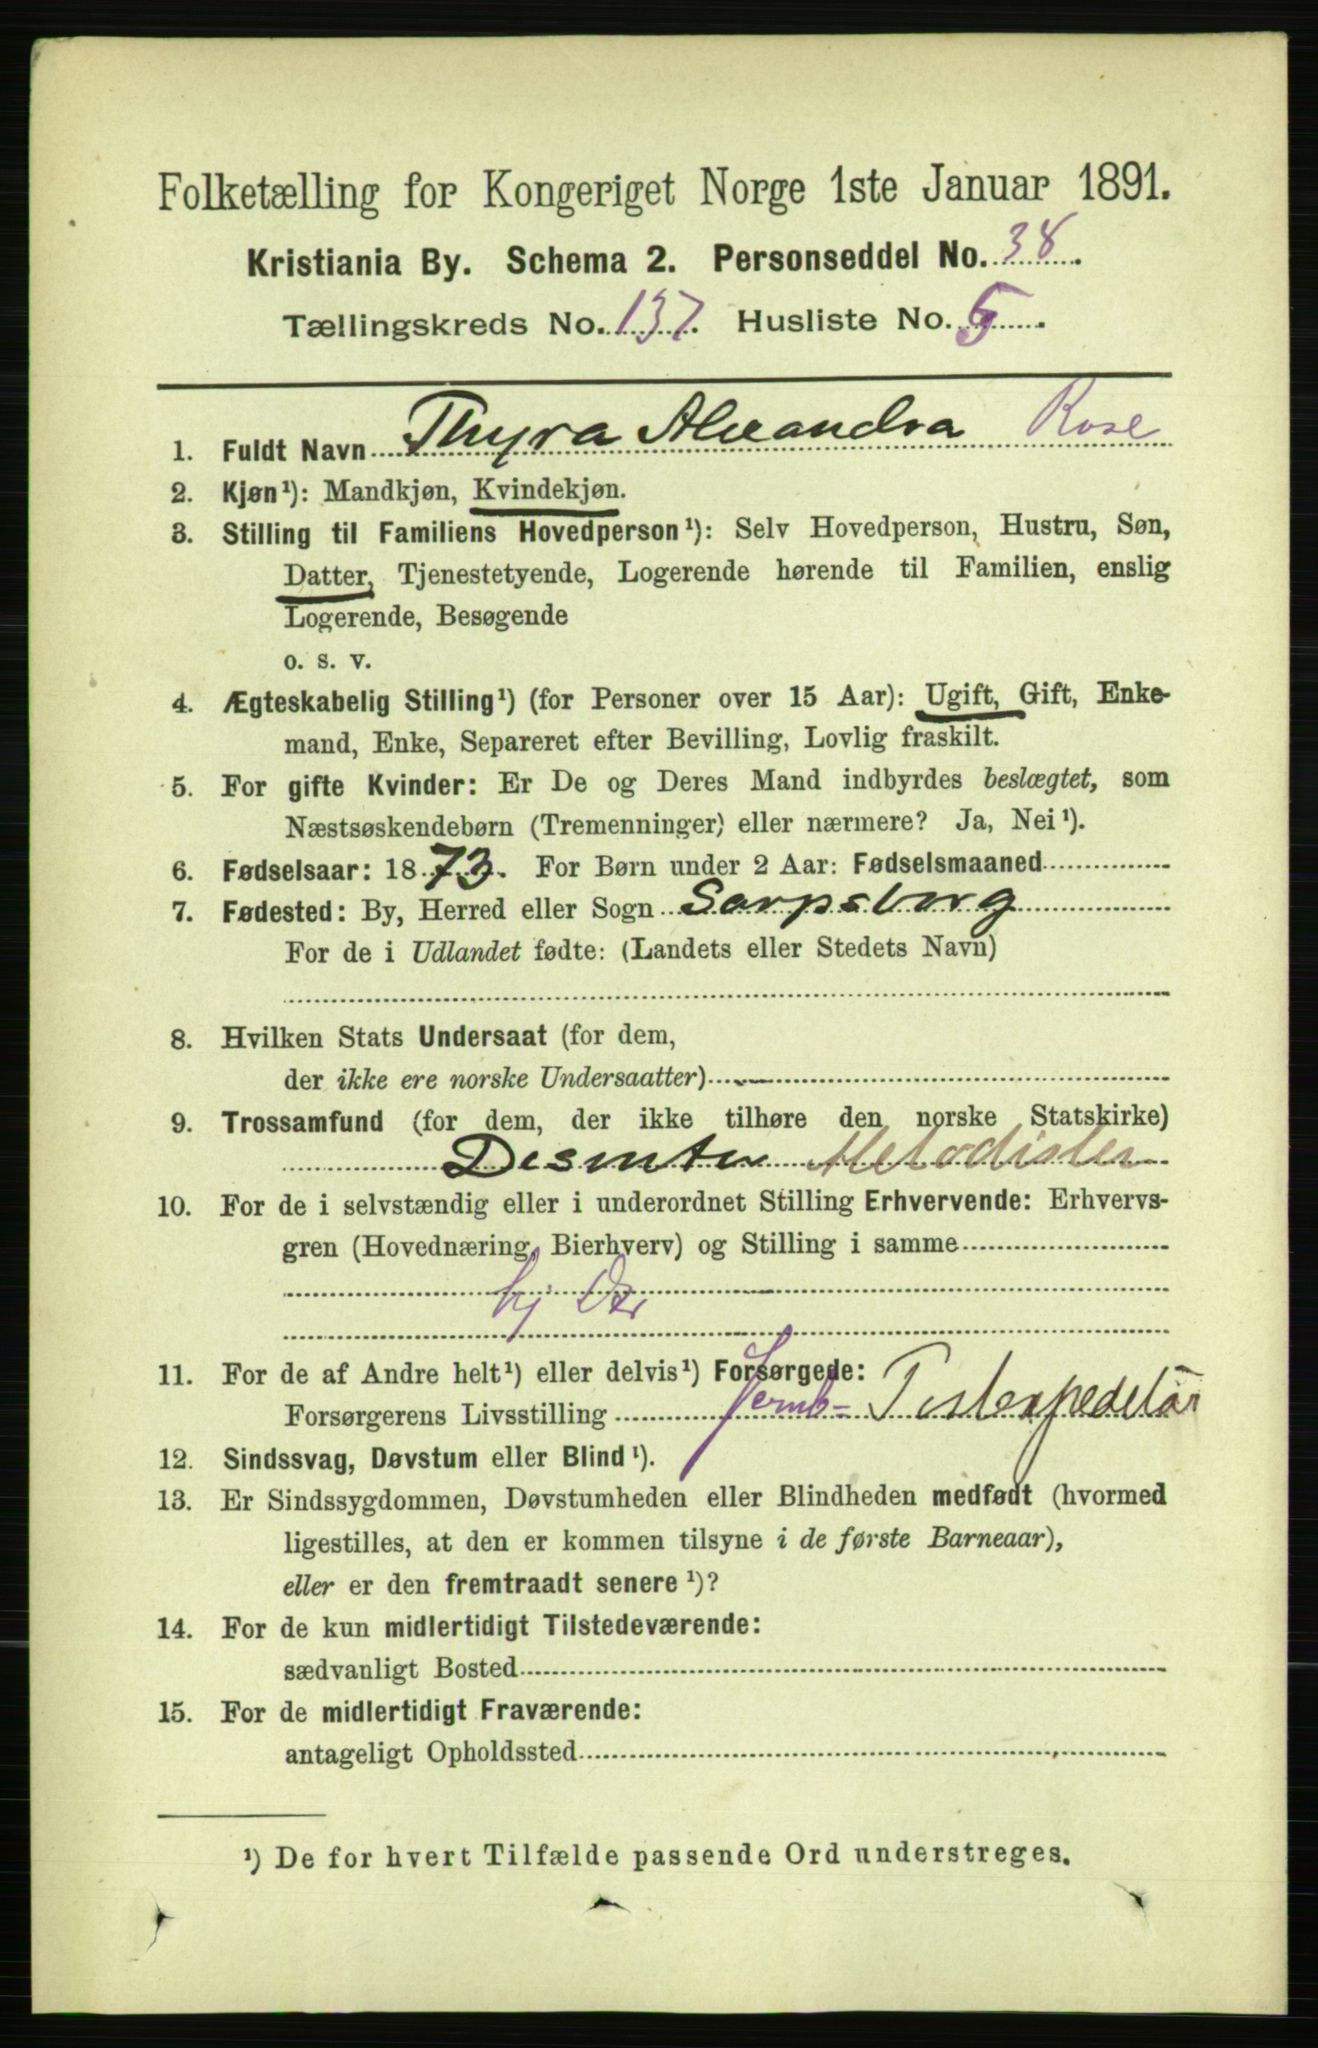 Folketælling for Kongeriget Norge 1ste Januar 1891.
Kristiania By. Schema 2. Personseddel No. 38.
Tællingskreds No. 137. Husliste No. 5.
1. Fuldt Navn Thyra Alexandra Rose
2. Kjøn¹): Mandkjøn, Kvindekjøn.
3. Stilling til Familiens Hovedperson¹): Selv Hovedperson, Hustru, Søn,
Datter, Tjenestetyende, Logerende hørende til Familien, enslig
Logerende, Besøgende
o. s. v.
4. Ægteskabelig Stilling¹) (for Personer over 15 Aar): Ugift, Gift, Enke-
mand, Enke, Separeret efter Bevilling, Lovlig fraskilt.
5. For gifte Kvinder: Er De og Deres Mand indbyrdes beslægtet, som
Næstsøskendebørn (Tremenninger) eller nærmere? Ja, Nei¹).
6. Fødselsaar: 1873. For Børn under 2 Aar: Fødselsmaaned
7. Fødested: By, Herred eller Sogn Sarpsborg
For de i Udlandet fødte: (Landets eller Stedets Navn)
8. Hvilken Stats Undersaat (for dem,
der ikke ere norske Undersaatter)
9. Trossamfund (for dem, der ikke tilhøre den norske Statskirke)
Desenter Metodister
10. For de i selvstændig eller i underordnet Stilling Erhvervende: Erhvervs-
gren (Hovednæring, Bierhverv) og Stilling i samme
hj Dr
11. For de af Andre helt¹) eller delvis¹) Forsørgede:
Forsørgerens Livsstilling Jernb-
12. Sindssvag, Døvstum eller Blind¹).
13. Er Sindssygdommen, Døvstumheden eller Blindheden medfødt (hvormed
ligestilles, at den er kommen tilsyne i de første Barneaar),
eller er den fremtraadt senere¹)?
14. For de kun midlertidigt Tilstedeværende:
sædvanligt Bosted
15. For de midlertidigt Fraværende:
antageligt Opholdssted
¹) De for hvert Tilfælde passende Ord understreges.